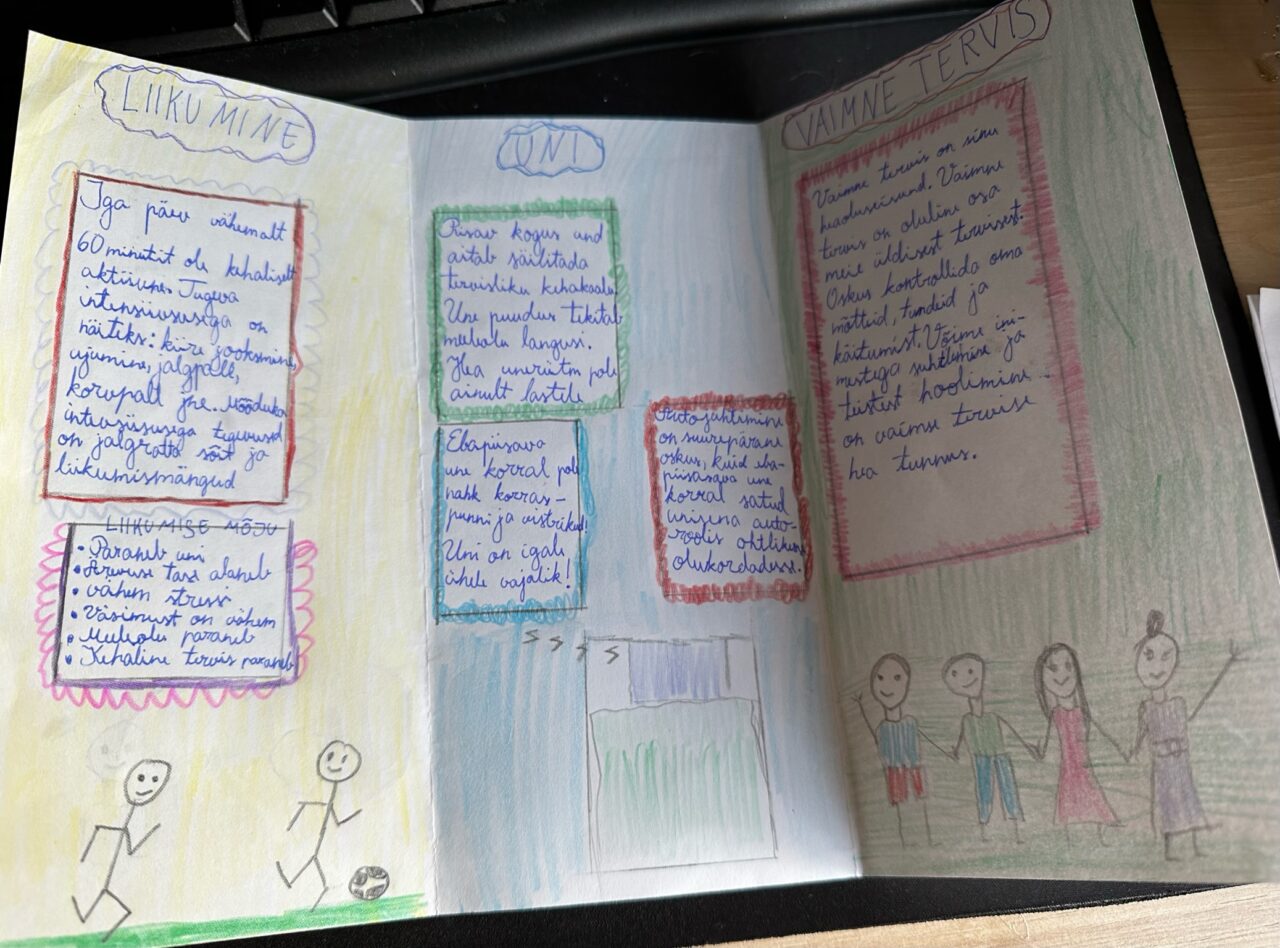 LIIKUMINE
Iga päev vähemalt
60 minutit ole kehaliselt
aktiivne. Tugeva
intensiivsusega on
näiteks: kiire jooksmine,
ujumine, jalgpall,
korvpall jne. Mõõduka
intensiivsusega tegevused
on jalgratta sõit ja
liikumismängud
LIIKUMISE MÕJU
• Paraneb uni
• Ärevuse tase alaneb
• vähem stressi
• Väsimust on vähem
• Meeleolu paraneb
• Kehaline tervis paraneb
UNI
Piisav kogus und
aitab säilitada
tervisliku kehakaalu
Une puudus tekitab
meeleolu langusi.
Hea unerütm pole
ainult lastele
Ebapiisava
une korral pole
nahk korras -
punni ja vistrikud!
Uni on igale
ühele vajalik!
Autojuhtimine
on suurepärane
oskus, kuid eba-
piisasava une
korral satud
unisena auto-
roolis ohtlikesse
olukordadesse.
VAIMNE TERVIS
Vaimne tervis on sinu
heaoluseisund. Vaimne
tervis on oluline osa
meie üldisest tervisest.
Oskus kontrollida oma
mõtteid, tundeid ja
käitumist. Võime ini-
mestega suhtlemine ja
teistest hoolimine
on vaimse tervise
hea tunnus.